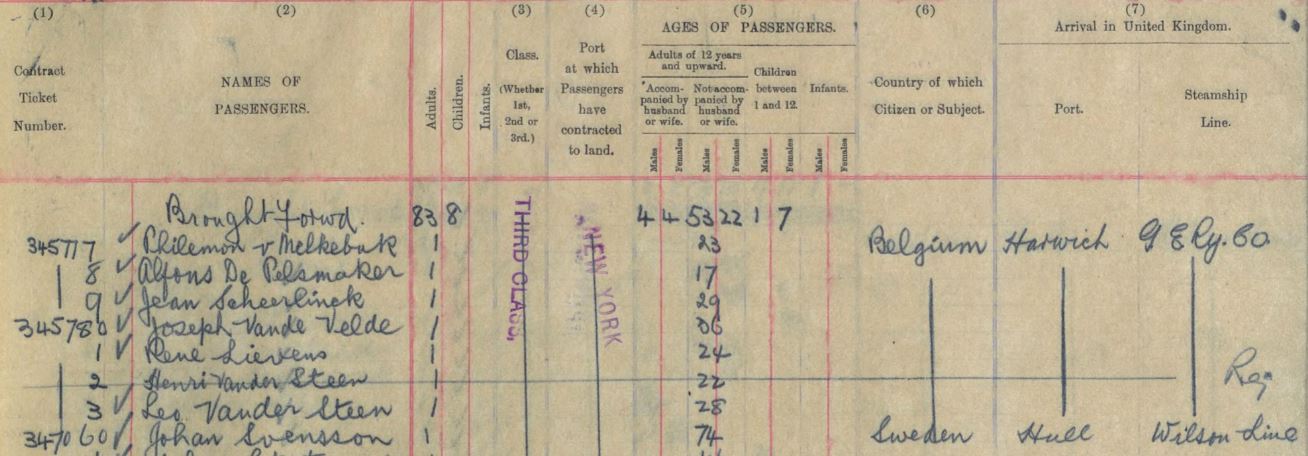 (1) (2) (3) (4) (5) (6) (7)
AGES OF PASSENGERS. Arrival in United Kingdom.
Contract Ticket Number.
NAMES OF PASSENGERS.
Adults. Children. Infants.
Class. (Whether 1st, 2nd or 3rd.)
Port at which Passengers have contracted to land.
Adults of 12 years and upward.
*Accompanied by husband or wife. Not accompanied by husband or wife.
Children between 1 and 12. Infants.
Males Females Males Females Males Females Males Females
Country of which Citizen or Subject.
Port. Steamship Line.
THIRD CLASS,
NEW YORK
Brought Forwd. 83 8 4 4 53 22 1 7
345777 Philemon v Melkebak 1 23 Belgium Harwich G E Ry. Co
8 Alfons De Pelsmaker 1 17
9 Jean Scheerlinck 1 29
345780 Joseph Vande Velde 1 36
1 Rene Lievens 1 24
2 Henri Vander Steen 1 22
3 Leo Vander Steen 1 28
347060 Johan Svensson 1 74 Sweden Hull Wilson Line